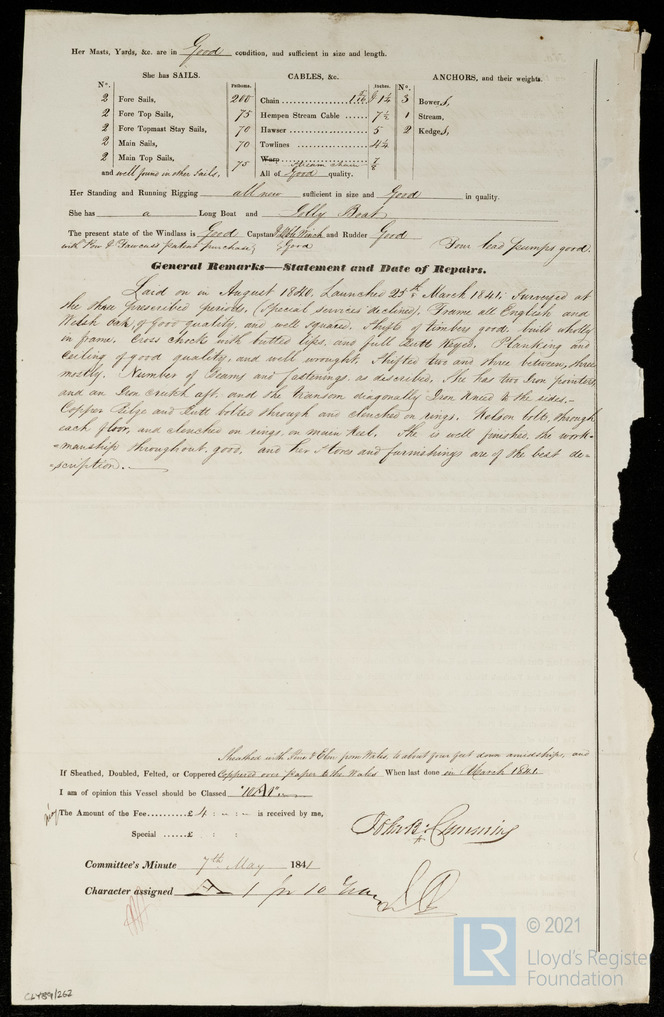 Her Masts, Yards, &c. are in Good condition, and sufficient in size and length.
She has SAILS.
CABLES, &c.
ANCHORS, and their weights.
No.
Fathoms.
Inches.
No.
2 Fore Sails,
200 Chain 1 1/4
3 Bowers,
2 Fore Top Sails,
75 Hempen Stream Cable 7½
1 Stream,
2 Fore Topmast Stay Sails,
70 Hawser 5
2 Kedges,
2 Main Sails,
70 Towlines 4½
2 Main Top Sails,
75 Warp Stream chain ⅞
and well found in other Sails.
All of Good quality.
Her Standing and Running Rigging all new sufficient in size and Good in quality.
She has a Long Boat and Jolly Boat
The present state of the Windlass is Good Capstan & Winch and Rudder Good
with patent purchase Good Four lead pumps good.
General Remarks—Statement and Date of Repairs.
Laid on in August 1840, Launched 25th March 1841, Surveyed at
the three prescribed periods, (Special services declined), Frame all English and
Welsh Oak, of good quality, and well squared. Shifts of timbers good, built wholly
in frame, Cross chocks with butted lips, and full Butt Keyed. Planking and
Ceiling of good quality, and well wrought, Shifted two and three between, three
mostly. Number of Beams and fastenings, as described, She has two Iron pointers
and an Iron Crutch aft, and the Transom diagonally Iron Kneed to the sides,-
Copper Bilge and Butt bolted through and clenched on rings. Kelson bolts, through
each floor, and clenched on rings, on main Keel. She is well finished, the work-
=manship throughout, good, and her Stores and furnishings are of the best de-
=scription.
Sheathed with Pine & Elm from Wales, to about four feet down amidships, and
If Sheathed, Doubled, Felted, or Coppered Coppered over paper to the Wales When last done in March 1841.
I am of opinion this Vessel should be Classed "10 A1"
The Amount of the Fee £ 4 : - : - is received by me,
Special £ : :
John Cummins
Committee's Minute 7th May 1841
Character assigned A 1 for 10 Years
CLY89/262
LR
© 2021
Lloyd's Register
Foundation